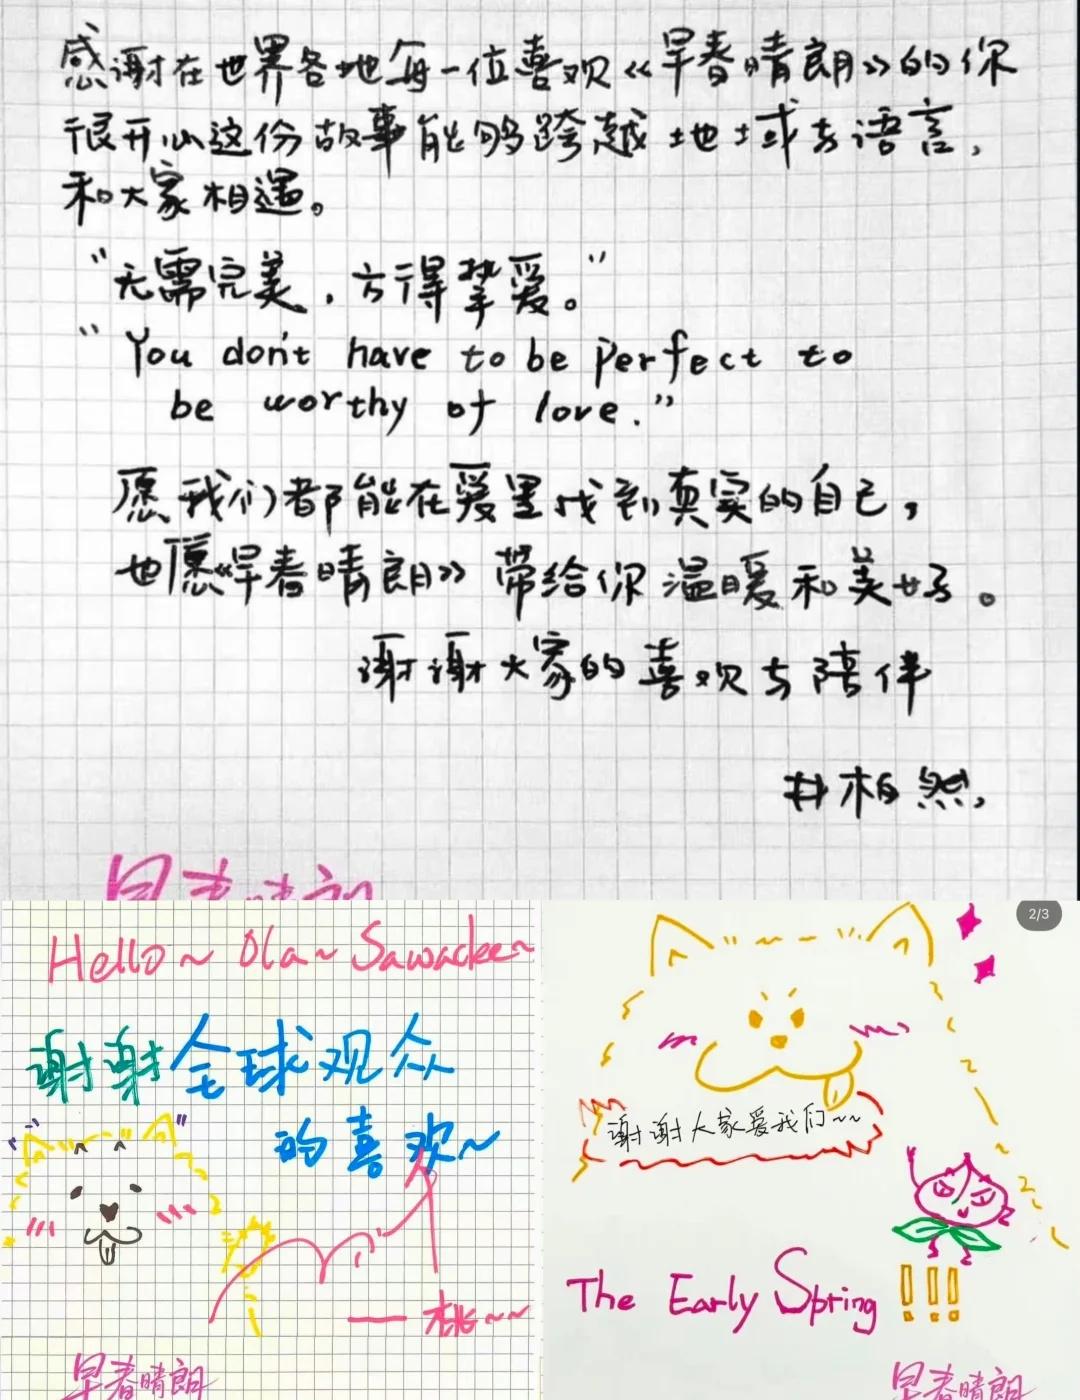 感谢在世界各地每一位喜欢《早春晴朗》的你
很开心这份故事能够跨越地域与语言，
和大家相遇。
"无需完美，方得挚爱。"
"You don't have to be perfect to
be worthy of love."
愿我们都能在爱里找到真实的自己，
也愿《早春晴朗》带给你温暖和美好。
谢谢大家的喜欢与陪伴
井柏然
早春晴朗
Hello~ Ola~ Sawadee~
谢谢全球观众
的喜欢~
—桃~~
早春晴朗
2/3
谢谢大家爱我们~~
The Early Spring !!!
早春晴朗